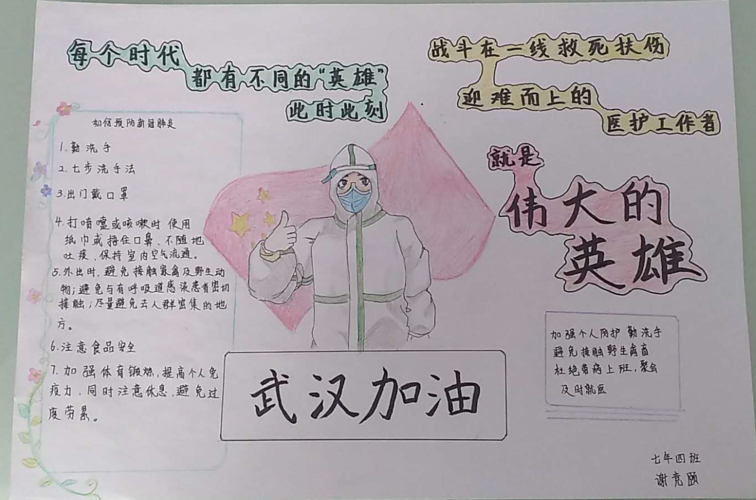 每个时代
都有不同的"英雄"
此时此刻
战斗在一线救死扶伤
迎难而上的
医护工作者
就是
伟大的
英雄
如何预防新冠肺炎
1.勤洗手
2.七步洗手法
3.出门戴口罩
4.打喷嚏或咳嗽时 使用
纸巾或捂住口鼻,不随地
吐痰,保持室内空气流通。
5.外出时,避免接触家禽及野生动
物;避免与有呼吸道感染患者密切
接触;尽量避免去人群密集的地
方。
6.注意食品安全
7.加强体育锻炼,提高个人免
疫力,同时注意休息,避免过
度劳累。
武汉加油
加强个人防护 勤洗手
避免接触野生禽畜
杜绝带病上班,聚会
及时就医
七年四班
谢竞颐